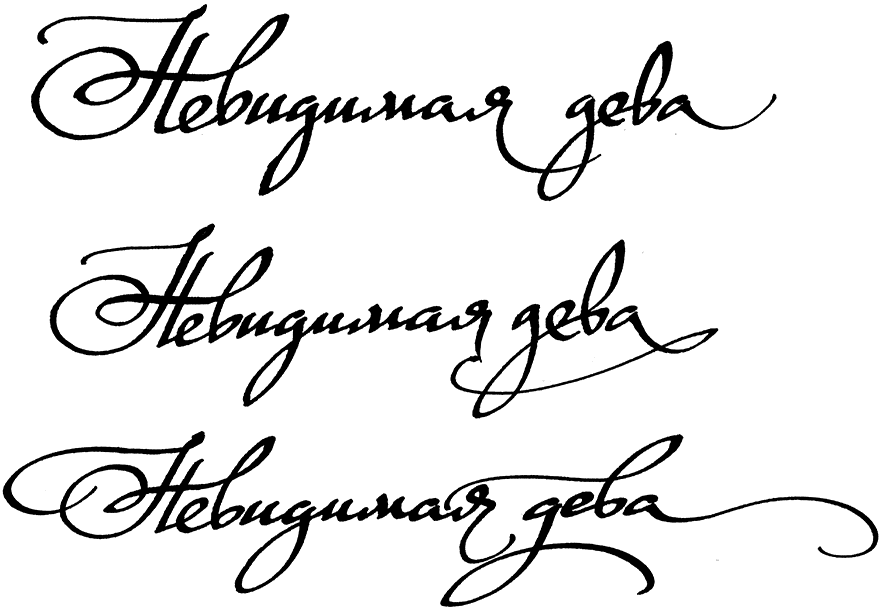 Невидимая дева
Невидимая дева
Невидимая дева